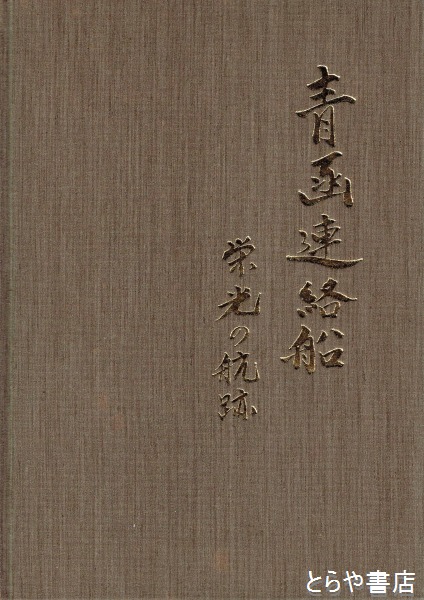 青函連絡船
栄光の航跡
とらや書店